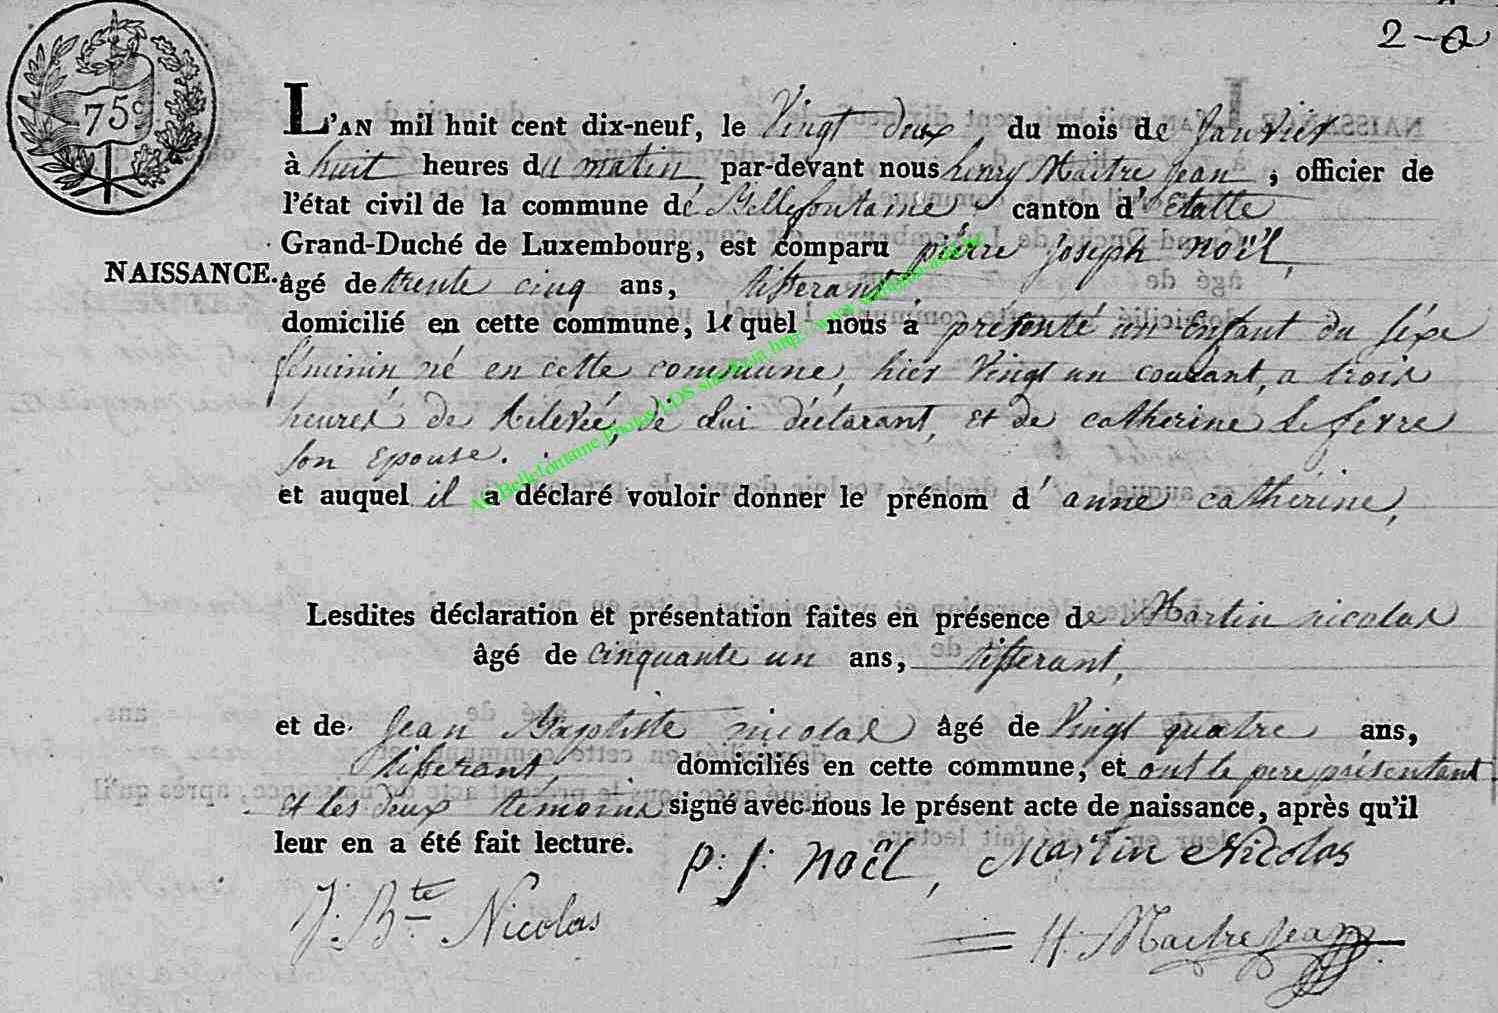 2-a
75 c
L'AN mil huit cent dix-neuf, le Vingt deux du mois de Janvier
à huit heures du matin par-devant nous henry Maitre Jean, officier de
l'état civil de la commune de Bellefontaine canton d'Etalle
Grand-Duché de Luxembourg, est comparu piérre joseph noël,
NAISSANCE. âgé de trente cinq ans, tisserant,
domicilié en cette commune, lequel nous a présenté un Enfant du séxe
féminin né en cette commune, hier Vingt un courant, a trois
heures de relevée, de lui déclarant, et de catherine lefevre
son Epouse.
et auquel il a déclaré vouloir donner le prénom d'anne catherine,
Lesdites déclaration et présentation faites en présence de Martin nicolas
âgé de cinquante un ans, tisserant,
et de Jean Baptiste nicolas âgé de Vingt quatre ans,
tisserant, domiciliés en cette commune, et ont le pere présentant
et les deux temoins signé avec nous le présent acte de naissance, après qu'il
leur en a été fait lecture.
p: j: noël, Martin Nicolas
J: Bte Nicolas
H: MaitreJean